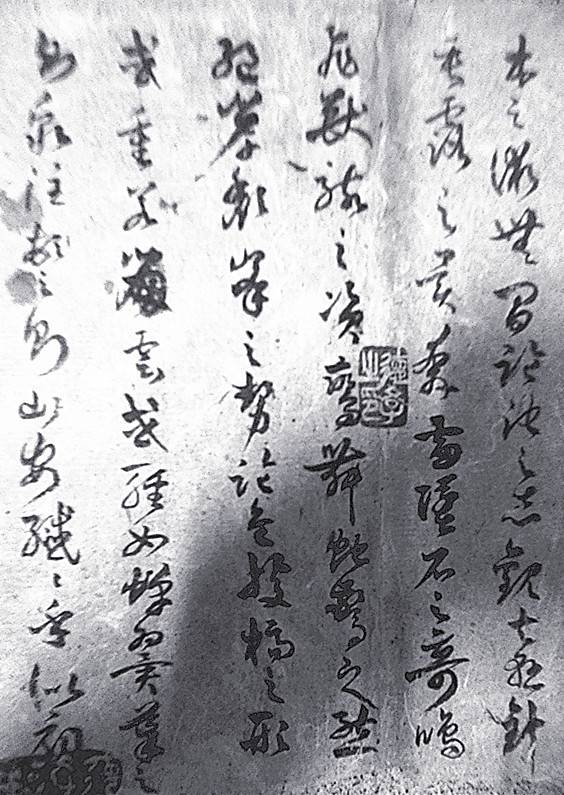 木之術無間臨池之志觀夫懸針
垂露之異奔雷墜石之奇鴻
飛獸駭之資鸞舞蛇驚之態
絕岸頹峯之勢臨危據槁之形
或重若崩雲或輕如蟬翼導之
則泉注頓之則山安纖〻乎似初